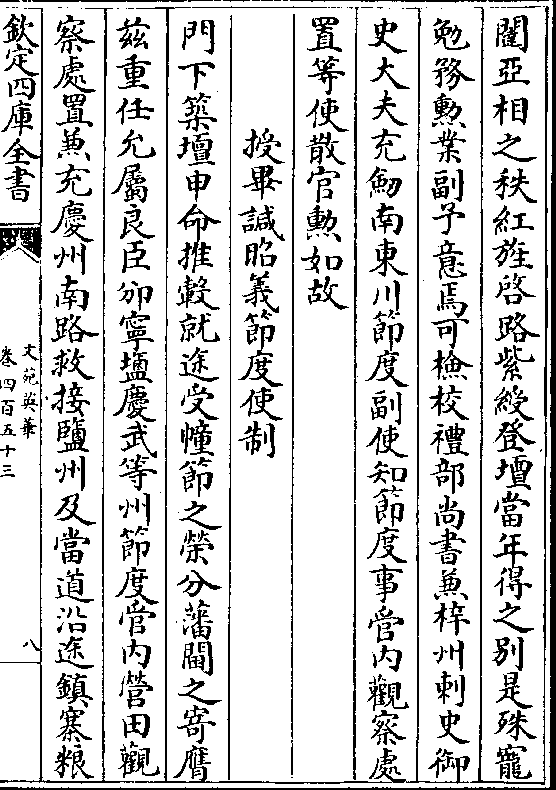 閫亞相之秩紅旌啓路紫綬登壇當年得之別是殊寵
勉務勲業副予意焉可檢校禮部尚書兼梓州刺史御
史大夫充劒南東川節度副使知節度事管内觀察處
置等使散官勲如故
授畢諴昭義節度使制
門下築壇申命推轂就途受幢節之榮分藩閫之寄膺
兹重任允屬良臣邠寧鹽慶武等州節度管内營田觀
察處置兼充慶州南路救接鹽州及當道沿途鎮寨粮
欽定四庫全書
文苑英華
卷四百五十三
八